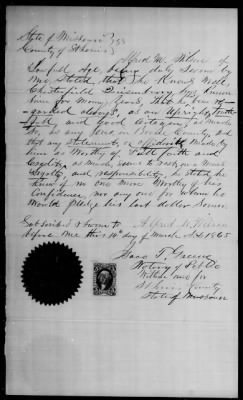 State of Missouri } SS
County of St Louis }
Alfred W. Wilson of
Lawful Age being duly Sworn by
me Stated that he Knows Well
Chesterfield Quisenberry has Known
him for many years, that he has
always as an Upright,
and good Citizen of as Much
So, as any one in Boone County and
that any Statements or Affidavits Made by
him is Worthy of faith and
as Much
Loyalty, and responsibility, he stated he
Knew of no one More Worthy of his
Confidence, nor any one for whom he
Would pledge his last dollar Sooner
Subscribed & Sworn to Alfred W Wilson
before me this 14th day of March A.D. 1865
Isaac T. Greene
Notary of Public
Within and for
St Louis County
State of Missouri